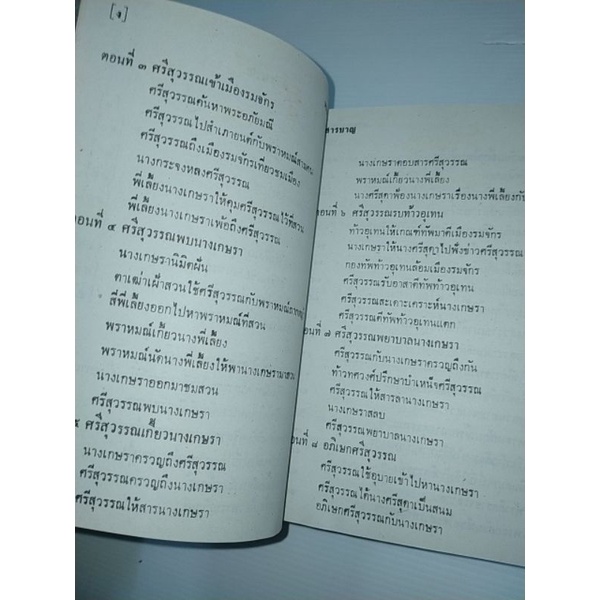 [๑]
ตอนที่ ๓ ศรีสุวรรณเข้าเมืองรมจักร
ศรีสุวรรณค้นหาพระอภัยมณี
ศรีสุวรรณไปสำเภายนต์กับพราหมณ์สามคน
ศรีสุวรรณถึงเมืองรมจักรเที่ยวชมเมือง
นางกระจงหลงศรีสุวรรณ
พี่เลี้ยงนางเกษราให้คุมศรีสุวรรณไว้ที่สวน
พี่เลี้ยงนางเกษราเพ้อถึงศรีสุวรรณ
ตอนที่ ๔ ศรีสุวรรณพบนางเกษรา
นางเกษรานิมิตฝัน
ตาเฒ่าเฝ้าสวนใช้ศรีสุวรรณกับพราหมณ์
สี่พี่เลี้ยงออกไปหาพราหมณ์ที่สวน
พราหมณ์เกี้ยวนางพี่เลี้ยง
พราหมณ์นัดนางพี่เลี้ยงให้พานางเกษรามาสวน
นางเกษราออกมาชมสวน
ศรีสุวรรณพบนางเกษรา
๕ ศรีสุวรรณเกี้ยวนางเกษรา
นางเกษราครวญถึงศรีสุวรรณ
ศรีสุวรรณครวญถึงนางเกษรา
ศรีสุวรรณให้สารนางเกษรา
สารบาญ
นางเกษราตอบสารศรีสุวรรณ
พราหมณ์เกี้ยวนางพี่เลี้ยง
นางศรีสุดาฟ้องนางเกษราเรื่องนางพี่เลี้ยงกับ
ตอนที่ ๖ ศรีสุวรรณรบท้าวอุเทน
ท้าวอุเทนให้เกณฑ์ทัพมาตีเมืองรมจักร
นางเกษราให้นางศรีสุดาไปฟังข่าวศรีสุวรรณ
กองทัพท้าวอุเทนล้อมเมืองรมจักร
ศรีสุวรรณรับอาสาตีทัพท้าวอุเทน
ศรีสุวรรณสะเดาะเคราะห์นางเกษรา
ศรีสุวรรณตีทัพท้าวอุเทนแตก
ตอนที่ ๗ ศรีสุวรรณพยาบาลนางเกษรา
ศรีสุวรรณกับนางเกษราครวญถึงกัน
ท้าวทศวงศ์ปรึกษาบำเหน็จศรีสุวรรณ
ศรีสุวรรณให้สารลานางเกษรา
นางเกษราสลบ
ศรีสุวรรณพยาบาลนางเกษรา
ตอนที่ ๘ อภิเษกศรีสุวรรณ
ศรีสุวรรณใช้อุบายเข้าไปหานางเกษรา
ศรีสุวรรณได้นางศรีสุดาเป็นสนม
อภิเษกศรีสุวรรณกับนางเกษรา